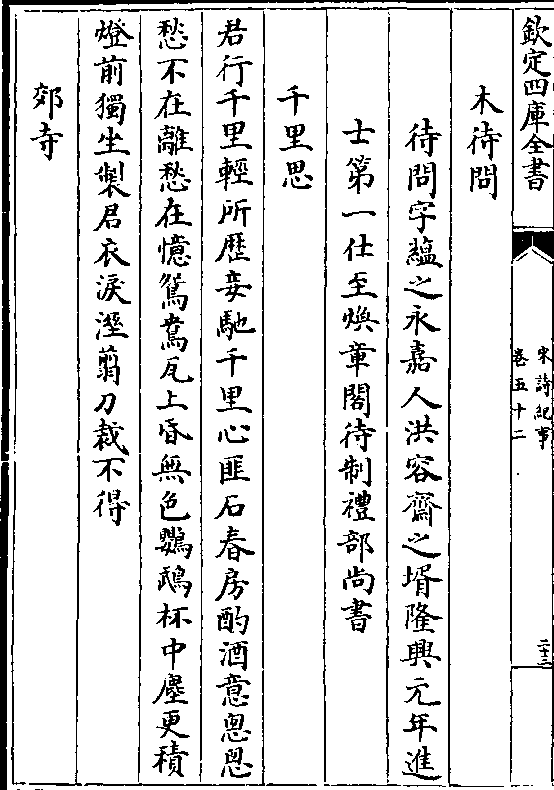 欽定四庫全書
宋詩紀事
卷五十二
二十三
木待問
待問字蘊之永嘉人洪容齋之壻隆興元年進
士第一仕至煥章閣待制禮部尚書
千里思
君行千里輕所歷妾馳千里心匪石春房酌酒意悤悤
愁不在離愁在憶鴛鴦瓦上昏無色鸚鵡杯中塵更積
燈前獨坐製君衣淚溼翦刀裁不得
郊寺